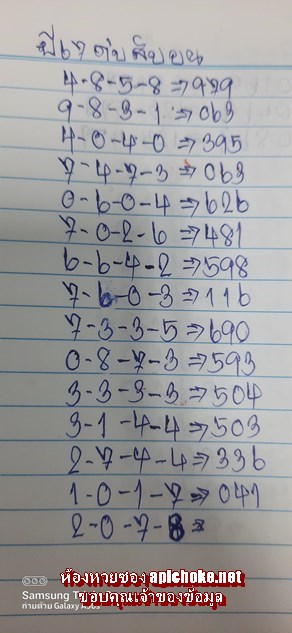 ปี67 ดับสิบบน
4-8-5-8⇒979
9-8-3-1⇒063
4-0-4-0⇒395
7-4-7-3⇒063
0-6-0-4⇒626
7-0-2-6⇒481
6-6-4-2⇒598
7-6-0-3⇒116
7-3-3-5⇒690
0-8-7-3⇒593
3-3-3-3⇒504
3-1-4-4⇒503
2-7-4-4⇒336
1-0-1-7⇒041
2-0-7-8⇒
ห้องหวยซอง apichoke.net
Samsung T
ขอบคุณเจ้าของข้อมูล
ถ่ายด้วย Galaxy A03s